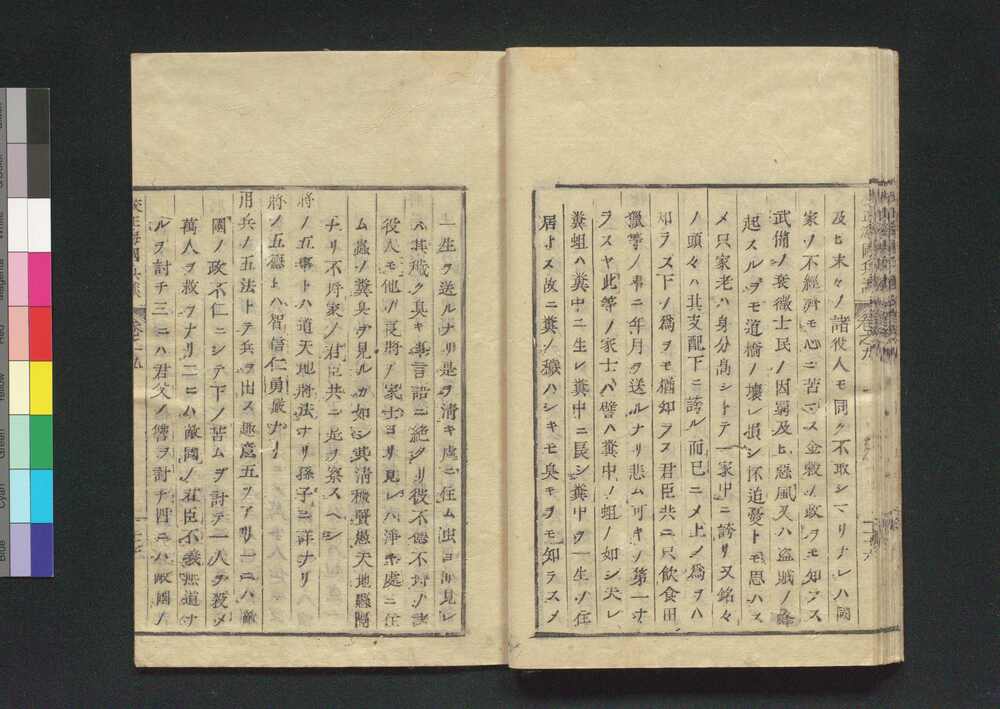 及ヒ末々ノ諸役人モ同ク不取シマリナレハ國
家ノ不經濟モ心ニ苦マス金穀ノ政ヲモ知ラス
武備ノ衰微士民ノ困窮及ヒ惡風又ハ盗賊ノ蜂
起スルヲモ道橋ノ壞レ損シ怀迫憂トモ思ハス
メ只家老ハ身分高シトテ一家中ニ誇リ又銘々
ノ頭々ハ其支配下ニ誇ル而已ニメ上ノ爲ヲハ
知ラス下ノ爲ヲモ猶知ラス君臣共ニ只飲食田
獵等ノ事ニ年月ヲ送ルナリ悲ム可キノ第一ナ
ラスヤ此等ノ家士ハ譬ハ糞中ノ蛆ノ如シ夫レ
糞蛆ハ糞中ニ生レ糞中ニ長シ糞中ヲ一生ノ住
居トス故ニ糞ノ穢ハシキモ臭キヲモ知ラスメ
一生ヲ送ルナリ是ヲ清キ處ニ住ム虫ヨリ見レ
ハ其穢ク臭キ事言語ニ絶タリ役不德不埒ノ諸
役人モ他ノ良將ノ家士ヨリ見レハ淨キ處ニ住
ム蟲ノ糞臭ヲ見ルカ如シ其清穢賢愚天地懸隔
ナリ不埒家ノ君臣共ニ是ヲ察スヘシ
將ノ五事トハ道天地將法ナリ孫子ニ詳ナリ
將ノ五德トハ智信仁勇嚴ナリ
用兵ノ五法トテ兵ヲ出ス趣意五ツアリ一ニハ敵
國ノ政不仁ニシテ下ノ苦ムヲ討テ一人ヲ殺メ
萬人ヲ救フナリ二ニハ敵國ノ君臣不義無道ナ
ルヲ討チ三ニハ君父ノ讐ヲ討チ四ニハ敵國ノ